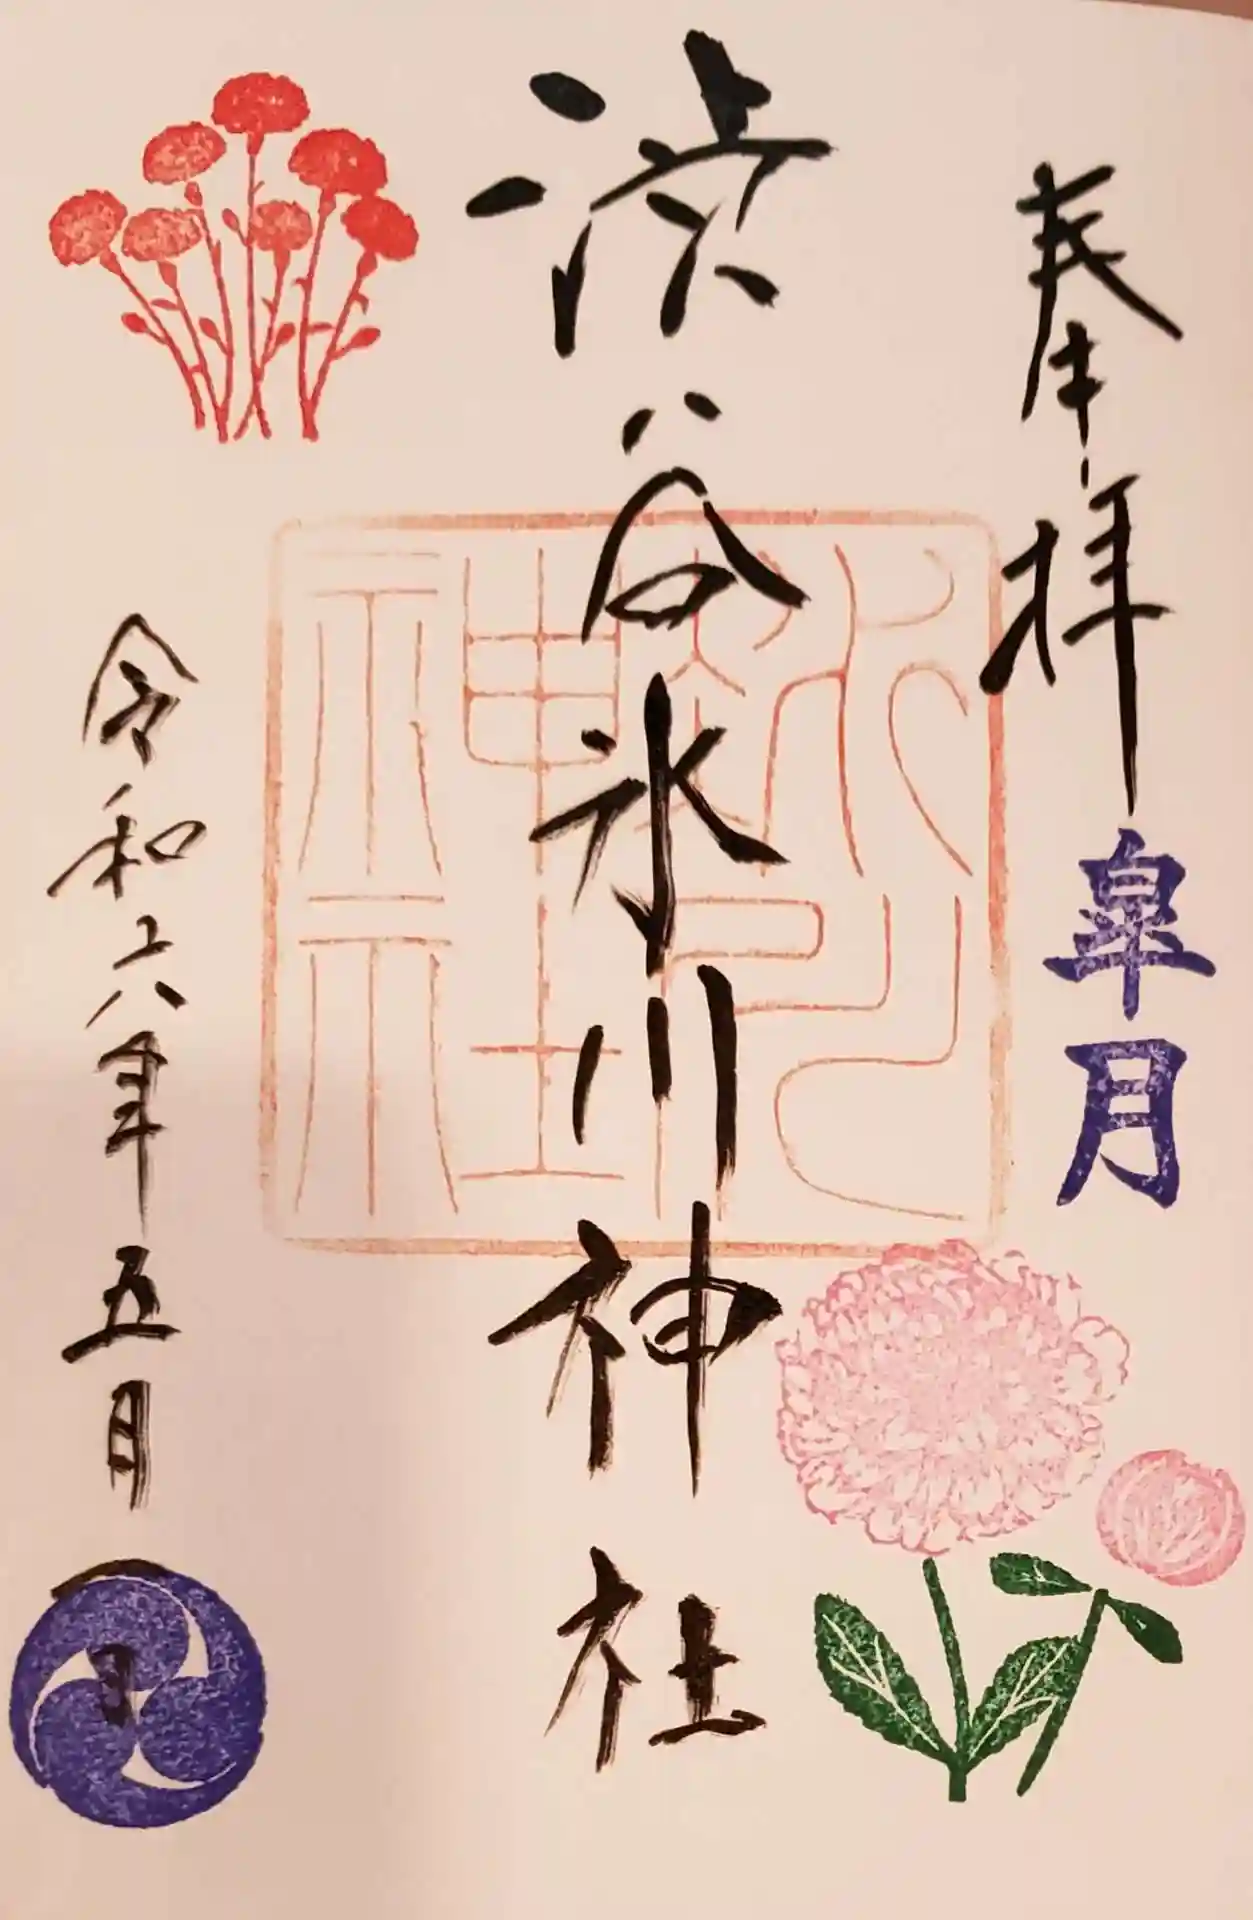 奉拝
皐月
渋谷氷川神社
氷川神社
令和六年五月
日